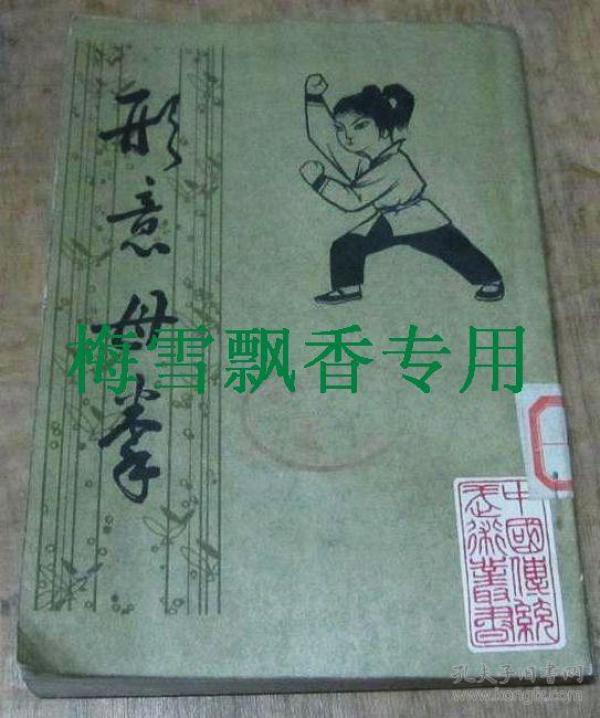 形意母拳
梅雪飘香专用
中國傳統
武術叢書
孔夫子旧书网
www.kongfz.com